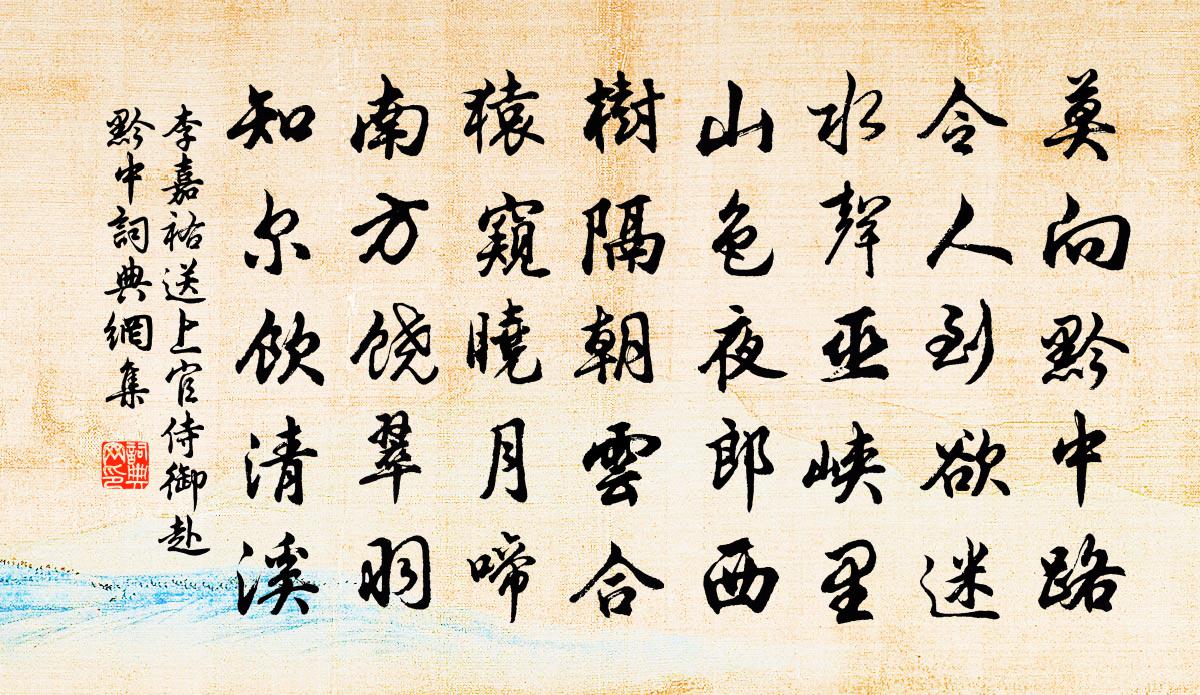 莫向黔中路
令人到欲迷
水聲巫峽里
山色夜郎西
樹隔朝雲合
猿窺曉月啼
南方饶翠羽
知尔飲清溪
李嘉祐送上官侍御赴
黔中詞典網集
詞典
网印